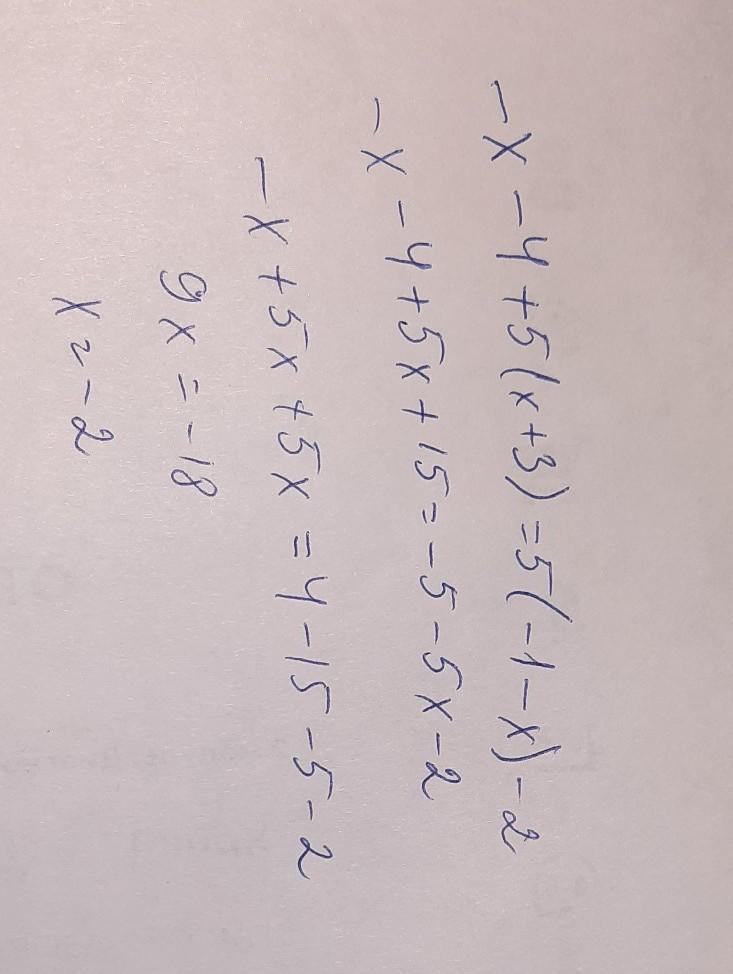 -x-4+5(x+3)=5(-1-x)-2
-x-4+5x+15=-5-5x-2
-x+5x+5x=4-15-5-2
9x=-18
x=-2